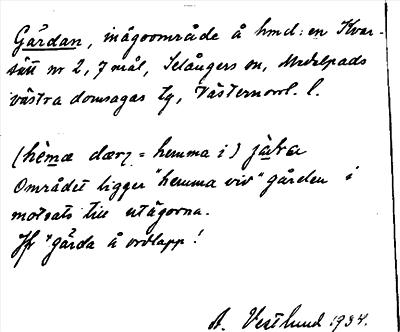 Gårdan, inägoområde å hmd: en Kvar-
sätt nr 2, 7 mål, Selångers sn, Medelpads
västra domsagas tg, Västernorrl. l.
(hèmæ dærɿ = hemma i) jàʎa
Området ligger "hemma viv" gården i
motsats till utägorna.
Jfr gärda å ordlapp!
A. Vestlund 1934.